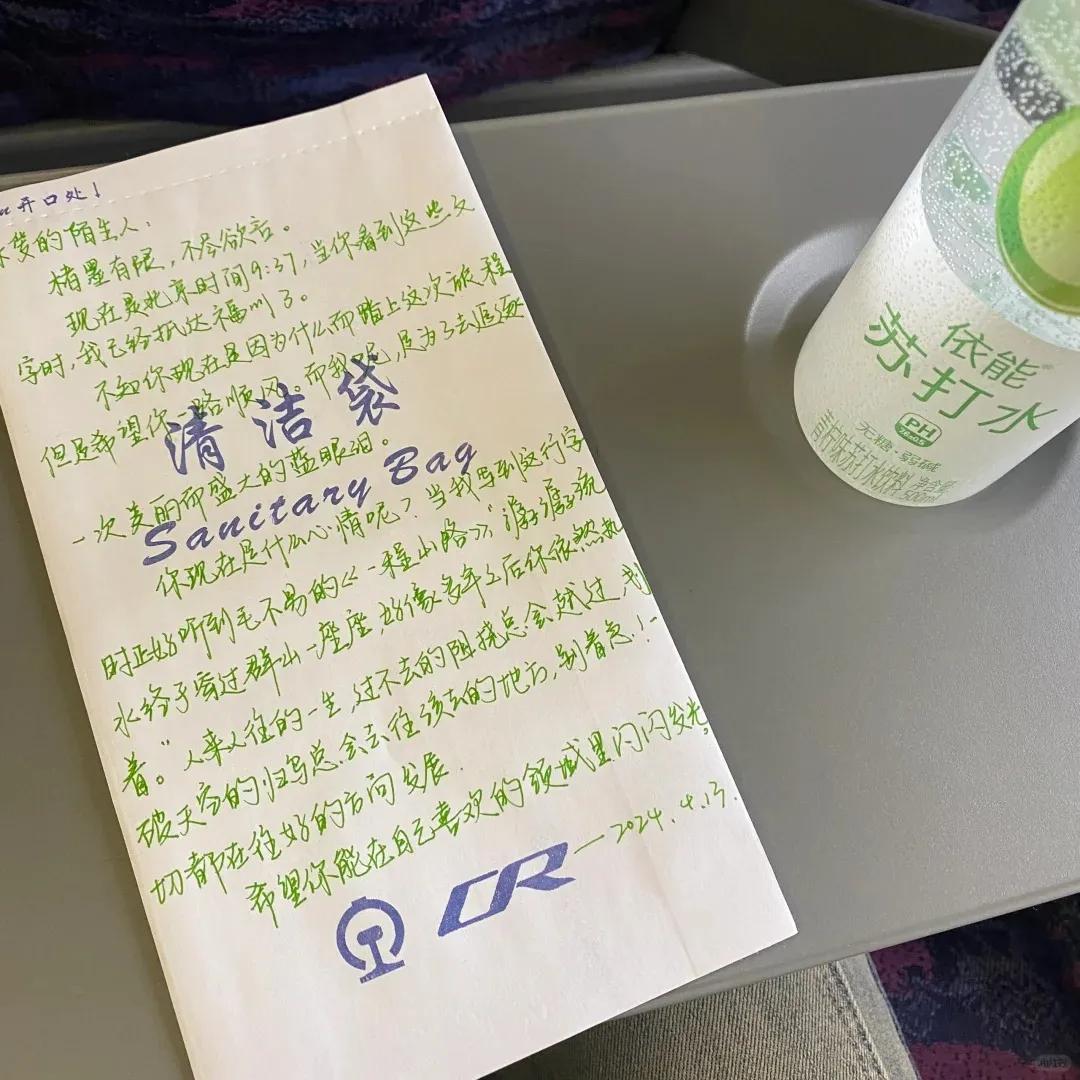 开口处！
亲爱的陌生人：
楮墨有限，不尽欲言。
现在是北京时间9:37，当你看到这些文
字时，我已经抵达福州了。
不知你现在是因为什么而踏上这次旅程
但是希望你一路顺风。而我呢，是为了去追逐
一次美丽而盛大的蓝眼泪。
你现在是什么心情呢？当我写到这行字
时正好听到毛不易的《一程山路》，"潺潺流
水终于穿过群山一座座，好像多年之后你依然执
着。"人来人往的一生，过不去的阻挠总会越过，划
破天穹的归鸟总会去往该去的地方，别着急！一
切都在往好的方向发展。
希望你能在自己喜欢的领域里闪闪发光。
—2024.4.13.
清洁袋
Sanitary Bag
CR
依能
苏打水
PH
无糖 弱碱
青柠味苏打水饮料
净含量
500ml